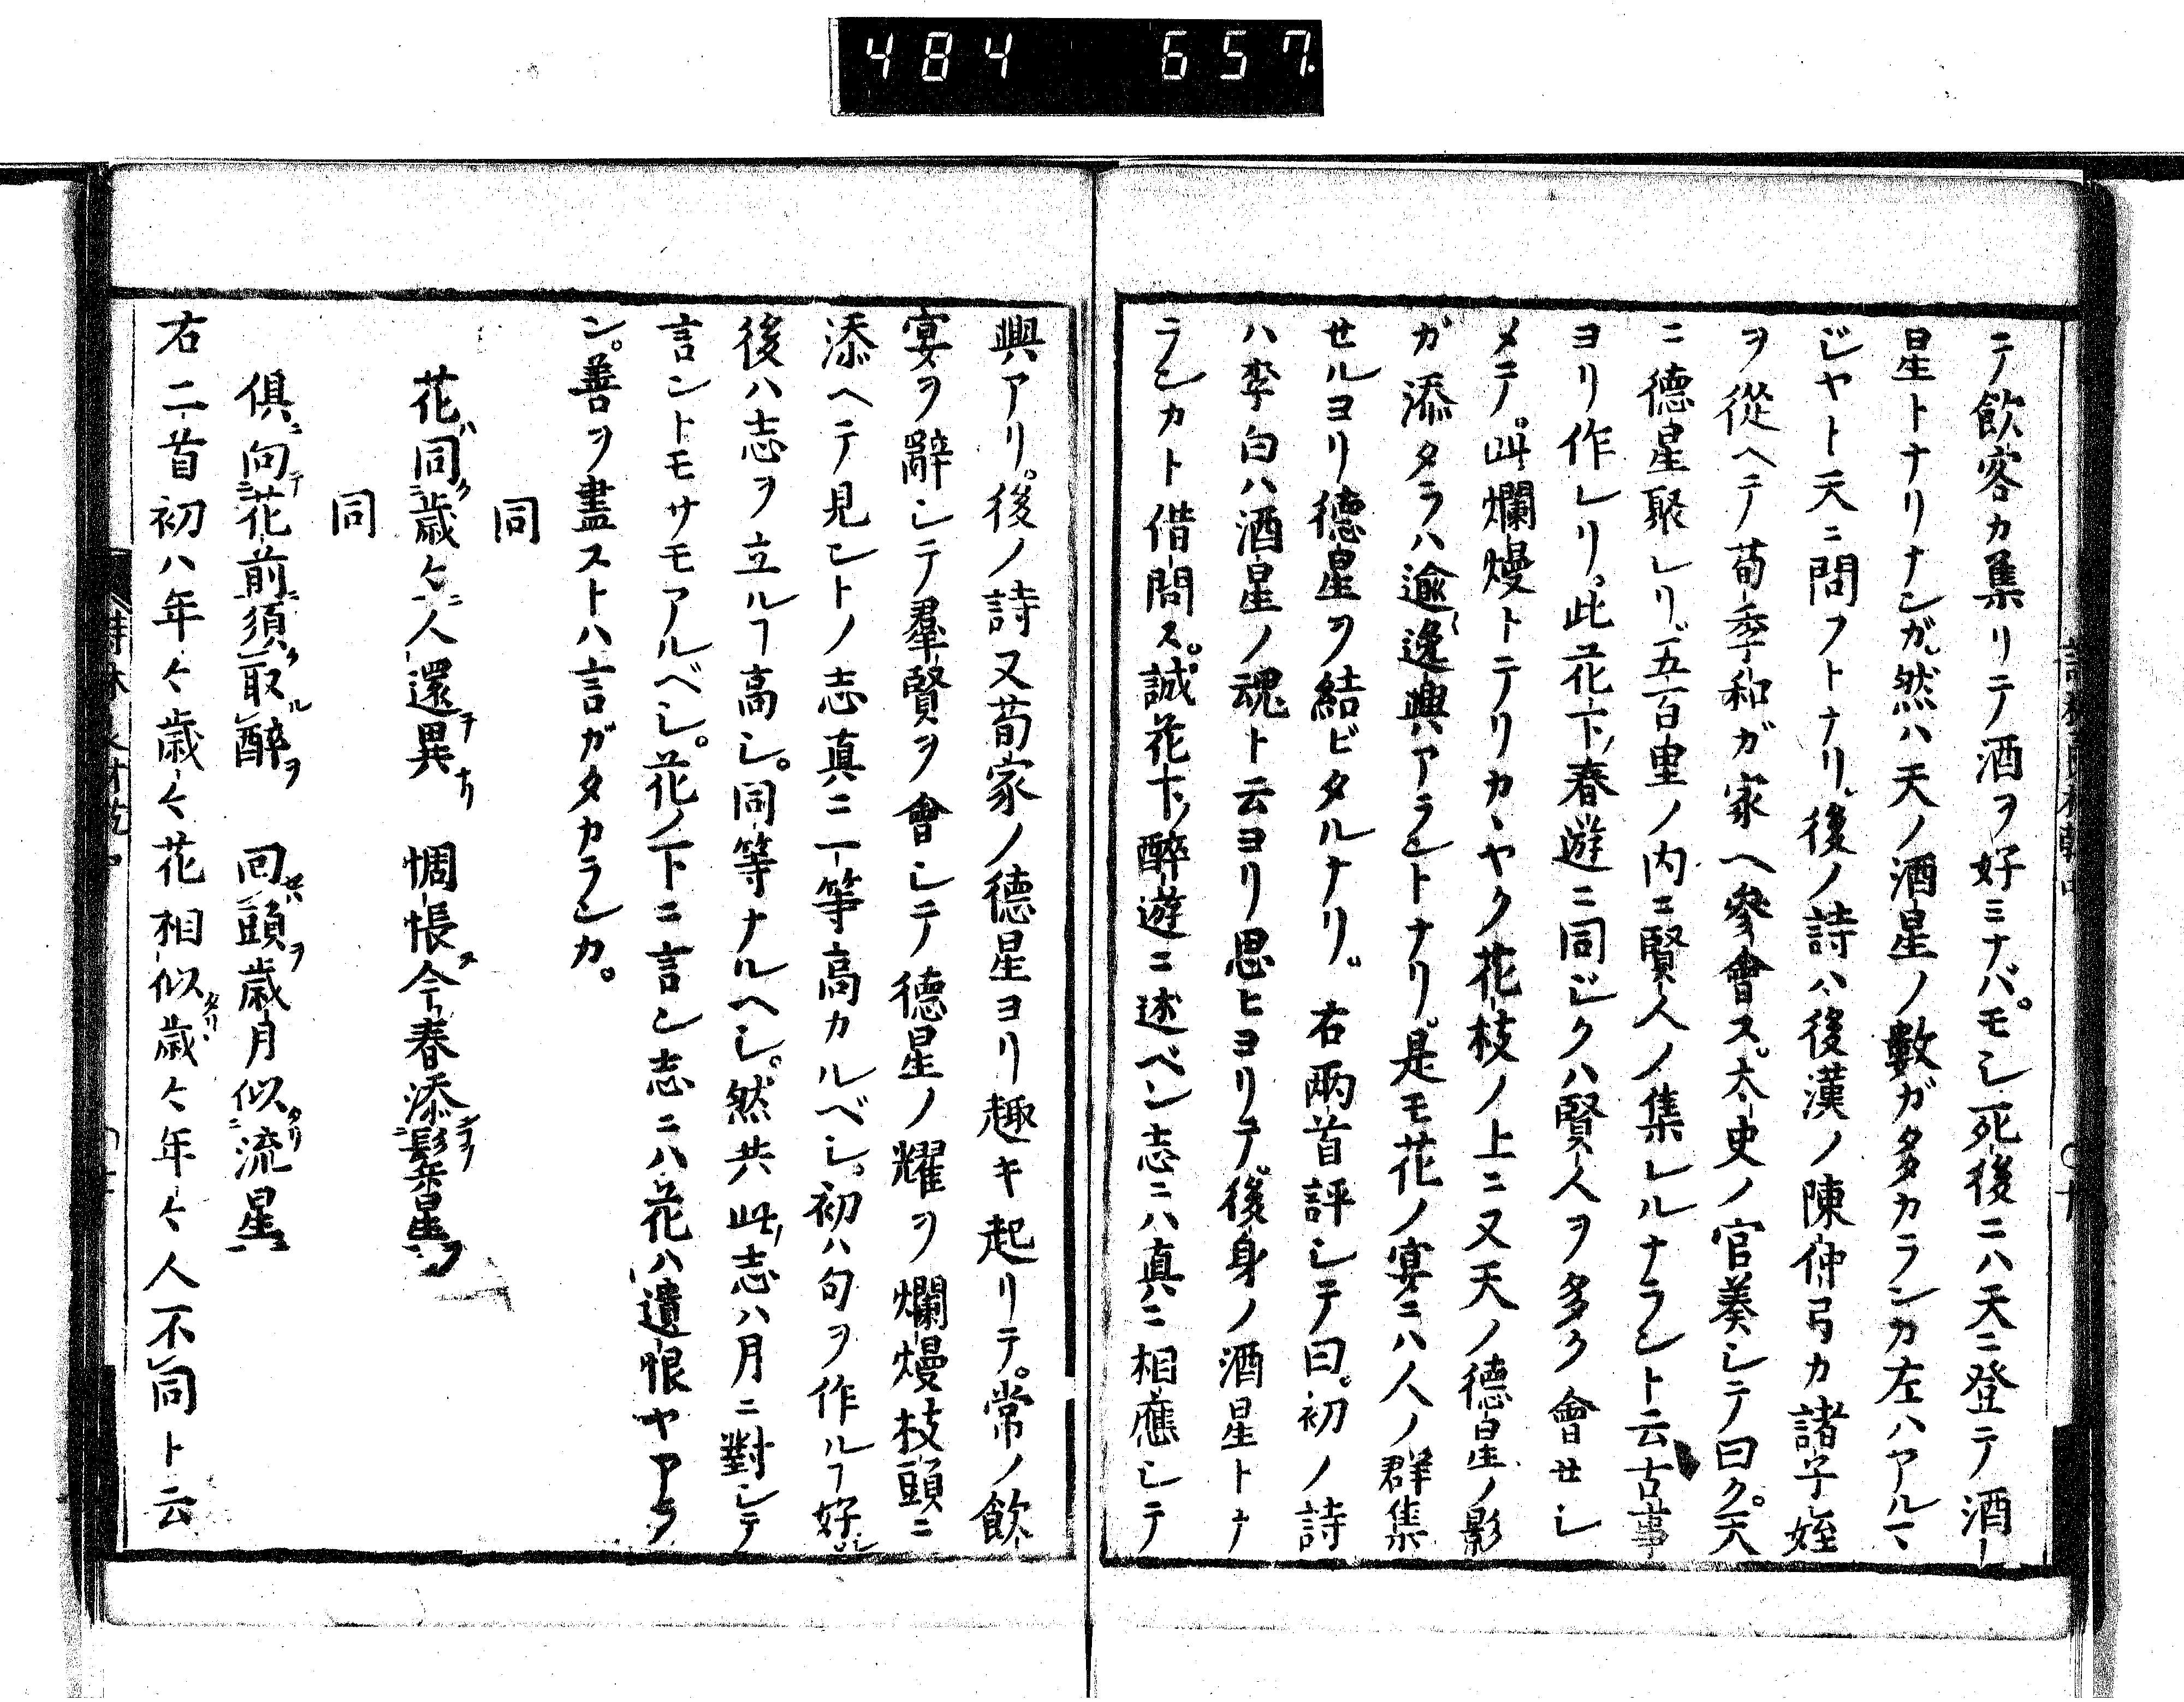 484 657
テ飲客カ集リテ酒ヲ好ミナバ。モシ死後ニハ天ニ登テ酒
星トナリナンガ。然ハ天ノ酒星ノ數ガ多カランカ左ハアルマ
ジヤト天ニ問フトナリ。後ノ詩ハ後漢ノ陳仲弓カ諸子姪
ヲ從ヘテ荀季和ガ家ヘ參會ス。太史ノ官奏シテ曰ク。天
ニ德星聚レリ。五百里ノ内ニ賢人ノ集レルナラント云古事
ヨリ作レリ。此花下ノ春遊ニ同ジクハ賢人ヲ多ク會セシ
メテ。此爛熳トテリカヽヤク花枝ノ上ニ又天ノ德星ノ影
ガ添タラハ逾逸興アラントナリ。是モ花ノ宴ニハ人ノ群集
セルヨリ德星ヲ結ビタルナリ。右兩首評シテ曰。初ノ詩
ハ李白ハ酒星ノ魂ト云ヨリ思ヒヨリテ。後身ノ酒星トナ
ランカト借問ス。誠花下ノ醉遊ニ述ベン志ニハ真ニ相應シテ
興アリ。後ノ詩又荀家ノ德星ヨリ趣キ起リテ。常ノ飲
宴ヲ辭シテ羣賢ヲ會シテ德星ノ耀ヲ爛熳枝頭ニ
添ヘテ見ントノ志真ニ一等高カルベシ。初ハ句ヲ作ルヿ好シ
後ハ志ヲ立ルヿ高シ。同等ナルヘシ。然共此志ハ月ニ對シテ
言ントモサモアルベシ。花ノ下ニ言ン志ニハ花ハ遺恨ヤアラ
ン。善ヲ盡ストハ言ガタカランカ。
同
花同歳々人還異 惆悵今春添鬢星
同
俱向花前須取醉 回頭歳月似流星
右二首初ハ年々歳々花相似歳々年々人不同ト云